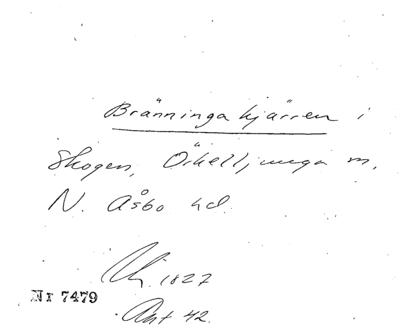 Bränninga kjärren i
Skogen, Örkelljunga m.
N. Åsbo hd.
1827
Nr 7479
Akt 42.